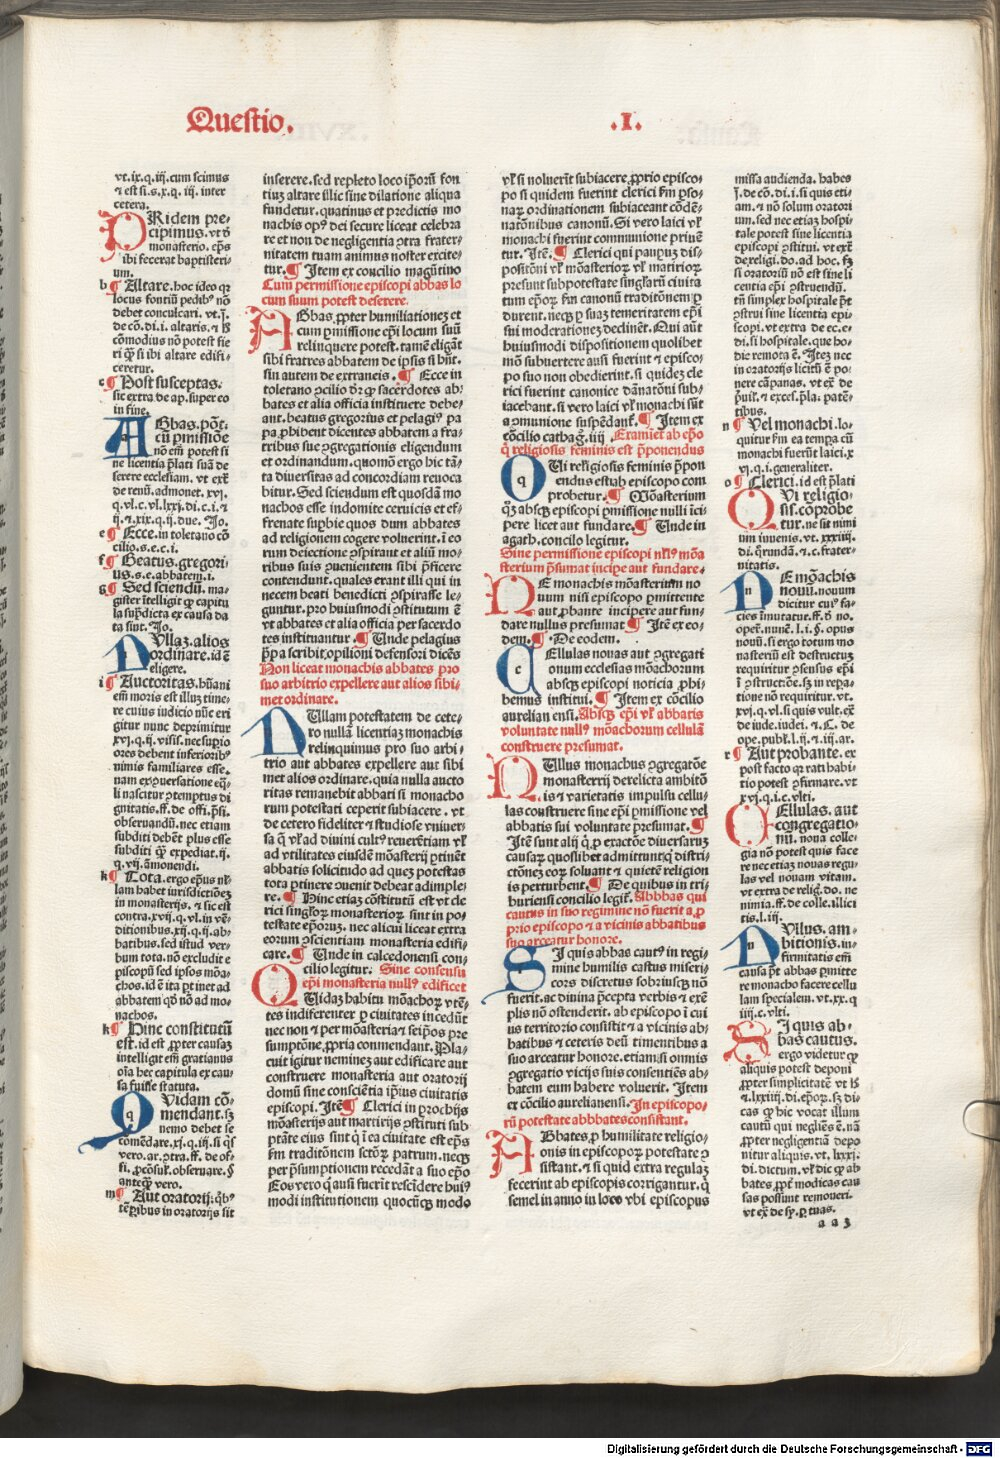 Questio. .I.
vt.ix.q.iij.cum scimus
⁊ est si.s.x.q. iij. inter
cetera.
PRidem pre-
cipimus. vt ĩ
monasterio. ep̃s
ibi fecerat baptisteri-
um.
b ¶ Altare. hoc ideo qꝛ
locus fontiũ pedibꝰ nõ
debet conculcari. vt.j.
de cõ. di. i. altaris. ⁊ hͦ
cõmodius nõ potest fie
ri qꝫ si ibi altare edifi-
ceretur.
c ¶ Post susceptas.
sic extra de ap. super eo
in fine.
ABbas. põt.
cũ ꝑmissiõe
nõ em̃ potest si
ne licentia p̃lati suã de
serere ecclesiam. vt extͣ
de renũ. admonet. xvj.
q. vl. c. vl. lxxj. di. c. i. ⁊
ij. ⁊. xix. q. ij. due. Jo.
e ¶ Ecce. in toletano cõ
cilio. s. e. c. i.
f ¶ Beatus. gregori-
us. s. e. abbatem. i.
g ¶ Sed sciendũ. ma-
gister ĩtelligit qꝫ capitu
la sup̃dicta ex causa da
ta sint. Jo.
NVllaꝫ. alios
ordinare. id ẽ
eligere.
i ¶ Auctoritas. hũani
em̃ moris est illuꝫ time-
re cuius iudicio nũc eri
gitur nunc deprimitur
xvj. q. ij. visis. nec supio
ores debent inferioribꝰ
nimis familiares esse.
nam ex ꝯuersatione eq̃-
li nascitur ꝯtemptus di
gnitatis. ff. de offi. p̃si.
obseruandũ. nec etiam
subditi debẽt plus esse
subditi qꝫ expediat. ij.
q. vij. ãmonendi.
k ¶ Tota. ergo ep̃us nĩ
lam habet iurisdictioẽꝫ
in monasterijs. ⁊ sic est
contra. xvij. q. vl. in vẽ-
ditionibus. xij. q. ij. ab-
batibus. sed istud ver-
bum tota. nõ excludit e
piscopũ sed ipsos mõa-
chos. id ẽ ita ꝑtinet ad
abbatem qͦ nõ ad mo-
nachos.
k ¶ Hinc constitutũ
est. id est ꝓpter causaꝫ
intelligit em̃ gratianus
oĩa hec capitula ex cau-
sa fuisse statuta.
QVidam cõ-
mendant. sꝫ
nemo debet se
cõmẽdare. xj. q. iij. si qͥs
vero. ar. ꝯtra. ff. de of-
fi. ꝓcõsul. obseruare. §
anteqꝫ vero.
m ¶ Aut oratorij: qͥbꝰ
tẽꝑibus in oratorijs sit
inserere. sed repleto loco ip̃oꝝ fon
tiuꝫ altare illic sine dilatione aliqua
fundetur. quatinus et predictis mo
nachis opꝰ dei secure liceat celebra
re et non de negligentia ꝯtra frater-
nitatem tuam animus noster excite-
tur. ¶ Item ex concilio magũtino
Cum permissione episcopi abbas lo
cum suum potest deserere.
ABbas ꝓpter humiliationeꝫ et
cum ꝑmissione ep̃i locum suũ
relinquere potest. tamẽ eligãt
sibi fratres abbatem de ipsis si hñt.
sin autem de extraneis. ¶ Ecce in
toletano ꝯcilio dr̃ qꝫ sacerdotes ab-
bates et alia officia instituere debe-
ant. beatus gregorius et pelagiꝰ pa
pa ꝓhibent dicentes abbatem a fra-
tribus sue ꝯgregationis eligendum
et ordinandum. quomõ ergo hic tã-
ta diuersitas ad concordiam reuoca
bitur. Sed sciendum est quosdã mo
nachos esse indomite ceruicis et ef-
frenate suꝑbie quos dum abbates
ad religionem cogere voluerint. i eo
rum deiectione ꝯspirant et aliũ mo-
ribus suis ꝯuenientem sibi p̃ficere
contendunt. quales erant illi qui in
necem beati benedicti ꝯspirasse le-
guntur. pro huiusmodi ꝯstitutum ẽ
vt abbates et alia officia per sacerdo
tes instituantur ¶ Unde pelagius
pp̃a scribit opilioni defensori dicẽs
Non liceat monachis abbates pro
suo arbitrio expellere aut alios sibi-
met ordinare.
NUllam potestatem de cete-
ro nullã licentiaꝫ monachis
relinquimus pro suo arbi-
trio aut abbates expellere aut sibi
met alios ordinare. quia nulla aucto
ritas remanebit abbati si monacho
rum potestati ceperit subiacere. vt
de cetero fideliter ⁊ studiose vniuer-
sa qͥ vl̃ ad diuini cultꝰ reuerẽtiam vl̃
ad vtilitates eiusdẽ mõasterij ꝑtinẽt
abbatis solicitudo ad queꝫ potestas
tota ꝑtinere ꝯuenit debeat adimple-
re. ¶ Hinc etiaꝫ cõstitutũ est vt cle
rici singl̃oꝝ monasterioꝝ sint in po-
testate ep̃oꝝꝫ. nec alicui liceat extra
eorum ꝯscientiam monasteria edifi-
care. ¶ Unde in calcedonensi con-
cilio legitur: Sine consensu
ep̃i monasteria nullꝰ edificet
QUidaꝫ habitu mõachoꝝ vtẽ-
tes indifferenter ꝑ ciuitates incedũt
nec non ⁊ per mõasteria⁊ seip̃os pre
sumptõne ꝓpria conmendant. Pla-
cuit igitur nemineꝫ aut edificare aut
construere monasteria aut oratorij
domũ sine consciẽtia ip̃ius ciuitatis
episcopi. Itẽ ¶ Clerici in ꝓochijs
mõasterijs aut martirijs ꝯstituti sub
ptãte eius sint qͥ i ea ciuitate est ep̃s
fm traditionẽm sctõꝝ patrum. necqꝫ
per p̃sumptionem recedãt a suo ep̃o
Eos vero qͥ ausi fuerĩt rescĩdere huiꝰ
modi institutionem quocũcqꝫ modo
vl̃ si noluerĩt subiacere ꝓprio episco-
po si quidem fuerint clerici fm ꝑso-
naꝝ ordinationem subiaceant cõdẽ-
natõnibus canonũ. Si vero laici vl̃
monachi fuerint communione priuẽ
tur. Itẽ. ¶ Clerici qui pauꝑuꝫ dis-
positõni vl̃ mõasterioꝝ vl̃ matirioꝝ
presunt subpotestate singl̃arũ ciuita
tum ep̃oꝝ fm canonũ traditõnem ꝑ
durent. necqꝫ ꝑ suaꝫ temeritatem ep̃i
sui moderationeꝫ declinẽt. Qui aũt
huiusmodi dispositionem quolibet
mõ subuertere ausi fuerint ⁊ episco-
po suo non obedierint. si quideꝫ cle
rici fuerint canonice dãnatõni sub-
iacebant. si vero laici vl̃ monachi sũt
a ꝯmunione suspẽdant. ¶ Item ex
cõcilio cathaḡ. iiij. Examiẽt ab ep̃o
q̃ religiosis feminis est p̃ponendus
QUi religiosis feminis p̃pon
endus est ab episcopo com
probetur. ¶ Mõasterium
qͦꝫ absqꝫ episcopi ꝑmissione nulli ici-
pere licet aut fundare. ¶ Unde in
agath. concilo legitur.
Sine permissione episcopi nulꝰ mõa
sterium p̃sumat incipe aut fundare.
DE monachis mõasterium no
uum nisi episcopo ꝑmittente
aut ꝓbante incipere aut fun-
dare nullus presumat ¶ Itẽ ex eo-
dem. ¶ De eodem.
CEllulas nouas aut ꝯgregati
onum ecclesias mõachorum
absqꝫ episcopi noticia ꝓhi-
bemus institui. ¶ Item ex cõcilio
aurelian ensi. Absqꝫ ep̃i vl̃ abbatis
voluntate nullꝰ mõachorum cellulã
construere presumat.
NUllus monachus ꝯgregatõe
monasterrij derelicta ambitõ
is ⁊ varietatis impulsu cellu-
las construere sine ep̃i ꝑmissione vel
abbatis sui voluntate presumat. ¶
Itẽ sunt alij qͥ ꝓ exactõe diuersaruꝫ
causaꝝ quoslibet admittunt qͥ distri-
ctõnes eoꝝ soluant ⁊ quietẽ religion
is perturbent. ¶ De quibus in tri-
buriensi concilio legit̃. Abbbas qui
cautus in suo regimine nõ fuerit a ꝓ
prio episcopo ⁊ a vicinis abbatibus
suo arceatur honore.
SI quis abbas cautꝰ in regi-
mine humilis castus miseri-
cors discretus sobriusqꝫ nõ
fuerit. ac diuina p̃cepta verbis ⁊ exẽ
plis nõ ostenderit. ab episcopo i cui
us territorio consistit ⁊ a vicinis ab-
batibus ⁊ ceteris deũ timentibus a
suo arceatur honore. etiam si omnis
ꝯgregatio vicijs suis consentiẽs ab-
batem eum habere voluerit. Item
ex cõcilio aurelianensi. In episcopo-
rũ potestate abbbates consistant.
ABbates ꝓ humilitate religio-
onis in episcoporꝫ potestate ꝯ
sistant. ⁊ si quid extra regulaꝫ
fecerint ab episcopis corrigantur. qͥ
semel in anno in loco vbi episcopus
missa audienda. habes
j. de cõ. di. i. si quis eti-
am. ⁊ nõ solum oratori
um. sed nec etiaꝫ hospi-
tale potest sine licentia
episcopi ꝯstitui. vt extͣ
de religi. do. ad hoc. sꝫ
si oratoriũ nõ est sine li
centia ep̃i ꝯstruendũ.
tñ simplex hospitale p̃t
ꝯstrui sine licentia epi-
scopi. vt extra de ec. e-
di. si hospitale. que ho-
die remota ẽ. Itẽꝫ nec
in oratorijs licitũ ẽ po-
nere cãpanas. vt extͣ de
p̃uil. ⁊ exces. p̃la: patẽ-
tibus.
n ¶ Uel monachi. lo-
quitur fm ea tempa cũ
monachi fuerũt laici. x
vj. q. i. generaliter.
o ¶ Clerici. id est p̃lati
QUi religio-
sis. cõprobe
tur. ne sit nimi
um iuuenis. vt. xxxiiij.
di. qͥrundã. ⁊. c. frater-
nitatis.
DE mõachis
nouũ. nouum
dicitur cuiꝰ fa-
cies ĩmutatur. ff. ð no.
opeĩ. nunẽ. l. i. §. opus
nouũ. si ergo totum mo
nasteriũ est destructuꝫ
requiritur ꝯsensus ep̃i
i ꝯstructiõe. sꝫ in repa-
tione nõ requiritur. vt.
xvj. q. vl. si quis vult. extͣ
de iude. iudei. ⁊. C. de
ope. publ. l. ij. ⁊. iij. ar.
r ¶ Aut probante. ex
post facto qꝛ rati habi-
tio potest ꝯfirmare. vt
xvj. q. i. c. vlti.
CEllulas. aut
congregatio-
nũ. noua colle-
gia nõ potest quis face
re nec etiaꝫ nouas regu-
las vel nouam vitam.
vt extra de relig̃. do. ne
nimia. ff. de colle. illici
tis. l. iij.
NUllus. am-
bitionis. in-
firmitatis em̃
causa p̃t abbas ꝑmitte
re monacho facere cellu
lam specialem. vt. xx. q
iiij. c. vlti.
SI quis ab-
bas cautus.
ergo videtur qꝫ
aliquis potest deponi
ꝓpter simplicitatẽ vt hͦ
⁊ lxxiiij. di. ep̃oꝝ. sꝫ di-
cas qꝫ hic vocat illum
cautũ qui negliẽs ẽ. nã
ꝓpter negligentiã depo
nitur aliquis. vt. lxxxj.
di. dictum. vl̃ dic qꝫ ab
bates ꝓpt̃ modicas cau
sas possunt remoueri.
vt extͣ de sy. ꝑ tuas.
a a 3
Digitalisierung gefördert durch die Deutsche Forschungsgemeinschaft - DFG